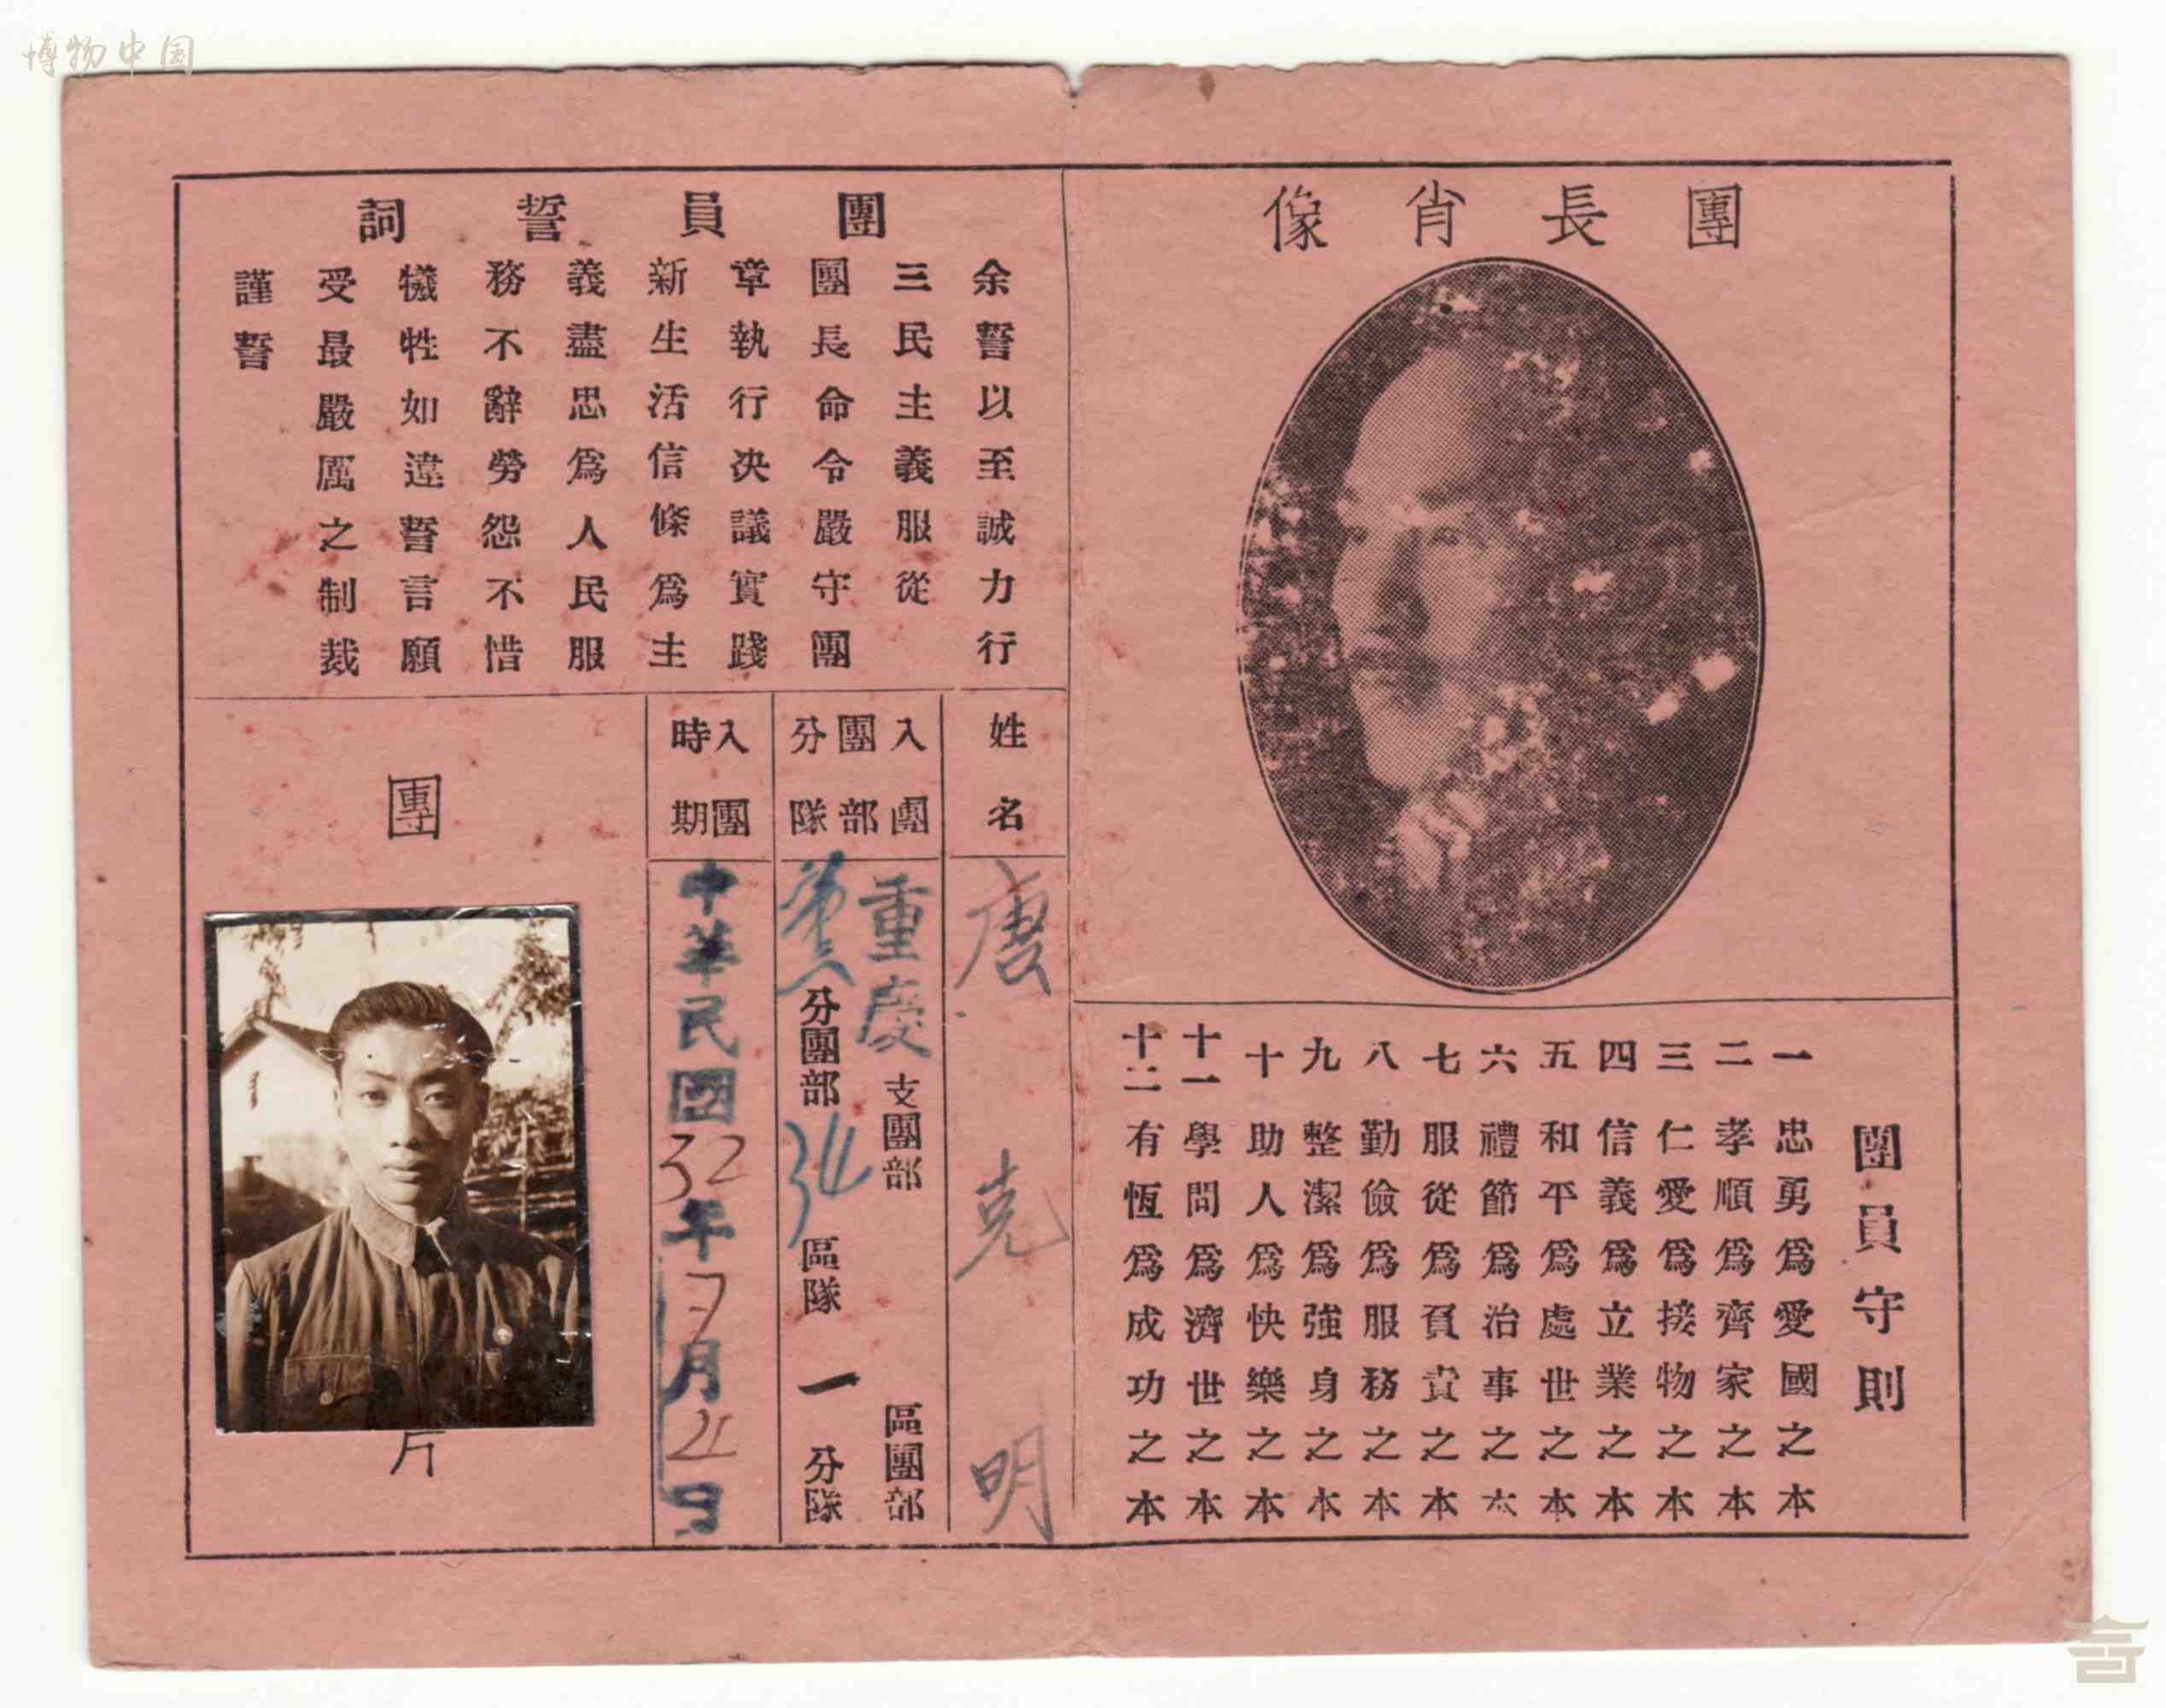 博物中国
團長肖像
團員守則
一 忠勇為愛國之本
二 孝順為齊家之本
三 仁愛為接物之本
四 信義為立業之本
五 和平為處世之本
六 禮節為治事之本
七 服從為負責之本
八 勤儉為服務之本
九 整潔為強身之本
十 助人為快樂之本
十一 學問為濟世之本
十二 有恆為成功之本
團員誓詞
余誓以至誠力行
三民主義服從
團長命令嚴守團
章執行决議實踐
新生活信條為主
義盡忠為人民服
務不辭勞怨不惜
犧牲如違誓言願
受最嚴厲之制裁
謹誓
姓名
唐克明
入團團部分隊
重慶支團部 區團部
分團部34區隊一分隊
入團時期
中華民國32年7月21日
團
片